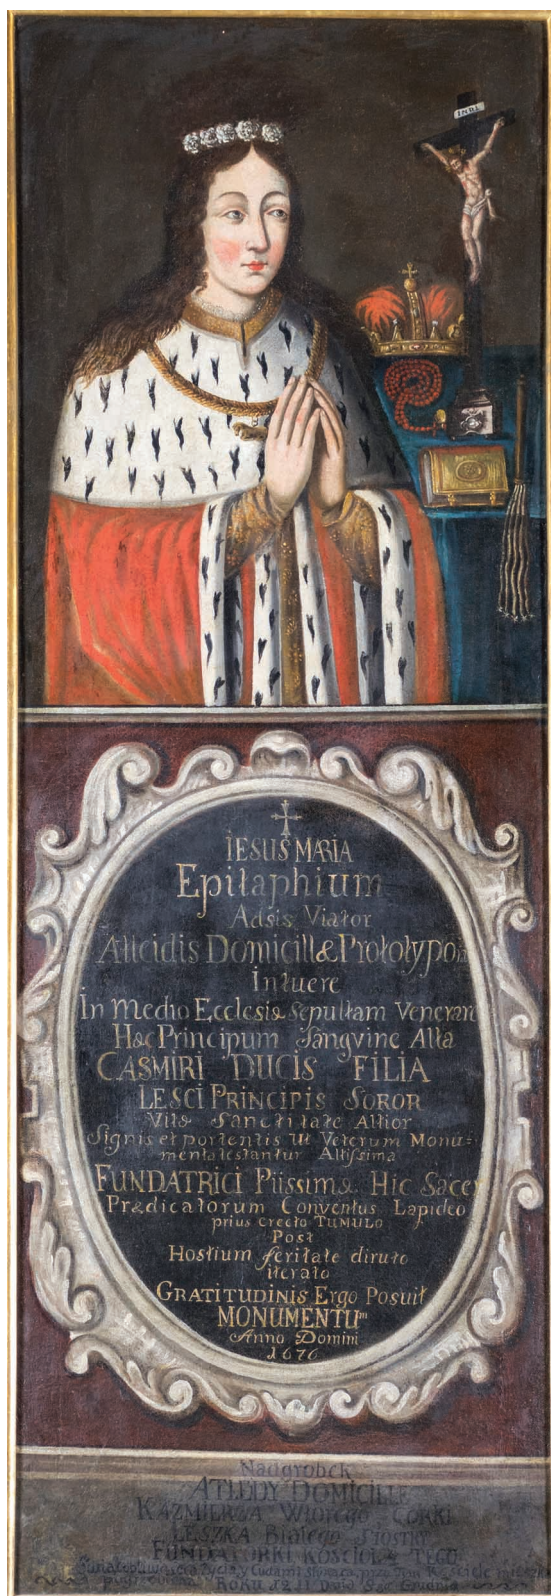 INRI
IESUS MARIA
Epitaphium
Adsis Viator
Atleidis Domicill& Prototypon
intuere
In Medio Ecclesiæ sepultam Veneran
Hæc Principum sangvine Alta
CASMIRI DUCIS FILIA
LESCI PRINCIPIS SOROR
Vitæ Sanctitate Altior
Signis et portentis Ut Veterum Monu=
menta testantur Altissima
FUNDATRICI Piissimæ Hic Sacer
Prædicatorum Conventus Lapideo
prius erecto TUMULO
Post
Hostium feritate diruto
iterato
GRATITUDINIS Ergo Posuit
MONUMENTUm
Anno Domini
1676
Nadgrobek
ATLEDY DOMICILLE
KAZMIERZA Wtorego CORKI
LESZKA Białego SIOSTRY
FUNDATORKI KOSCIOŁA TEGO
Zycia y Cudami
ROKU 1211 Dnia